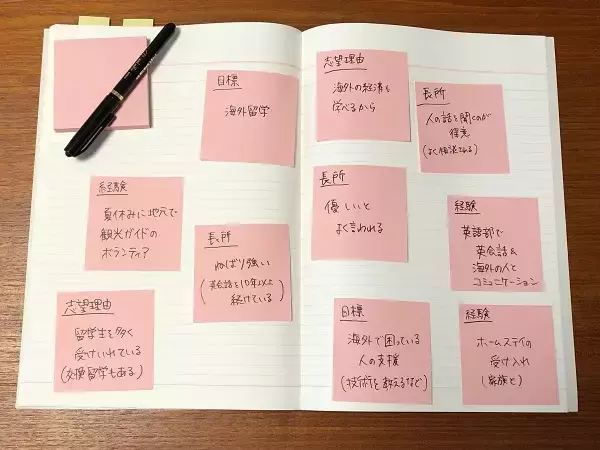 目標
海外留学
経験
夏休みに地元で
観光ガイドの
ボランティア
長所
ねばり強い
(英会話を10年以上
続けている)
志望理由
留学生を多く
受けいれている
(交換留学もある)
志望理由
海外の経済も
学べるから
長所
人の話を聞くのが
得意
(よく相談される)
長所
優しいと
よく言われる
経験
英語部で
英会話&
海外の人と
コミュニケーション
目標
海外で困っている
人の支援
(技術を教えるなど)
経験
ホームステイの
受け入れ
(家族と)